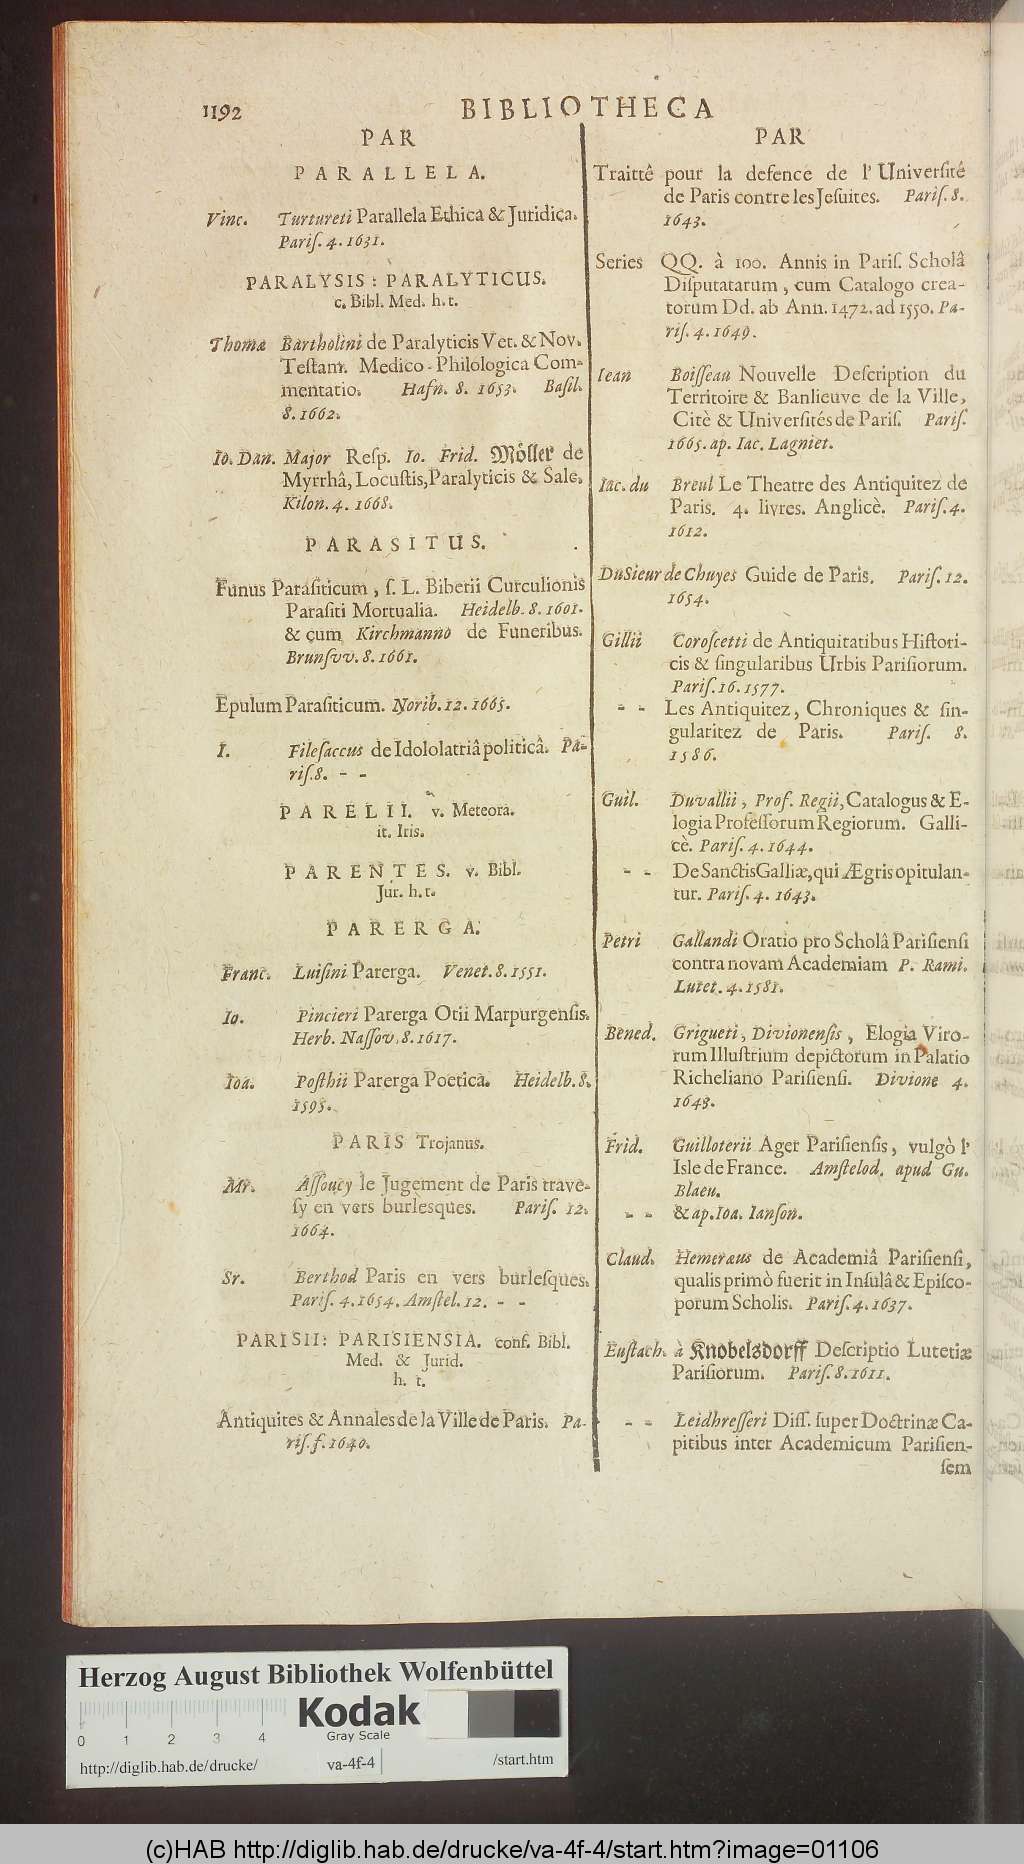 1192
BIBLIOTHECA
PAR
PARALLELA.
Vinc. Turtureti Parallela Ethica & Juridica.
Pariſ. 4. 1631.
PARALYSIS: PARALYTICUS.
c. Bibl. Med. h. t.
Thomæ Bartholini de Paralyticis Vet. & Nov.
Teſtam. Medico-Philologica Com-
mentatio. Hafn. 8. 1653. Baſil.
8. 1662.
Io. Dan. Major Reſp. Io. Frid. Möller de
Myrrhâ, Locuſtis, Paralyticis & Sale.
Kilon. 4. 1668.
PARASITUS.
Funus Paraſiticum, ſ. L. Biberii Curculionis
Paraſiti Mortualia. Heidelb. 8. 1601.
& cum Kirchmanno de Funeribus.
Brunſvv. 8. 1661.
Epulum Paraſiticum. Norib. 12. 1665.
I. Fileſaccus de Idololatriâ politicâ. Pa-
riſ. 8. - -
PARELII. v. Meteora.
it. Iris.
PARENTES. v. Bibl.
Jur. h. t.
PARERGA.
Franc. Luiſini Parerga. Venet. 8. 1551.
Io. Pincieri Parerga Otii Marpurgenſis.
Herb. Naſſov. 8. 1617.
Ioa. Poſthii Parerga Poetica. Heidelb. 8.
1595.
PARIS Trojanus.
Mr. Aſſoucy le Jugement de Paris trave-
ſy en vers burleſques. Pariſ. 12.
1664.
Sr. Berthod Paris en vers burleſques.
Pariſ. 4. 1654. Amſtel. 12. - -
PARISII: PARISIENSIA. conf. Bibl.
Med. & Jurid.
h. t.
Antiquites & Annales de la Ville de Paris. Pa-
riſ. f. 1640.
PAR
Traittê pour la defence de l'Univerſitê
de Paris contre les Jeſuites. Pariſ. 8.
1643.
Series QQ. à 100. Annis in Pariſ. Scholâ
Diſputatarum, cum Catalogo crea-
torum Dd. ab Ann. 1472. ad 1550. Pa-
riſ. 4. 1649.
Iean Boiſſeau Nouvelle Deſcription du
Territoire & Banlieuve de la Ville,
Citè & Univerſités de Pariſ. Pariſ.
1665. ap. Iac. Lagniet.
Iac. du Breul Le Theatre des Antiquitez de
Paris. 4. livres. Anglicè. Pariſ. 4.
1612.
Du Sieur de Chuyes Guide de Paris. Pariſ. 12.
1654.
Gillii Coroſcetti de Antiquitatibus Hiſtori-
cis & ſingularibus Urbis Pariſiorum.
Pariſ. 16. 1577.
- - Les Antiquitez, Chroniques & ſin-
gularitez de Paris. Pariſ. 8.
1586.
Guil. Duvallii, Prof. Regii, Catalogus & E-
logia Profeſſorum Regiorum. Galli-
cè. Pariſ. 4. 1644.
- - De Sanctis Galliæ, qui Ægris opitulan-
tur. Pariſ. 4. 1643.
Petri Gallandi Oratio pro Scholâ Pariſienſi
contra novam Academiam P. Rami.
Lutet. 4. 1581.
Bened. Grigueti, Divionenſis, Elogia Viro-
rum Illuſtrium depictorum in Palatio
Richeliano Pariſienſi. Divione 4.
1643.
Frid. Guilloterii Ager Pariſienſis, vulgò l'
Isle de France. Amſtelod. apud Gu.
Blaeu.
- - & ap. Ioa. Ianſon.
Claud. Hemeræus de Academiâ Pariſienſi,
qualis primò fuerit in Inſulâ & Epiſco-
porum Scholis. Pariſ. 4. 1637.
Euſtach. à Knobelsdorff Deſcriptio Lutetiæ
Pariſiorum. Pariſ. 8. 1611.
- - Leidhreſſeri Diſſ. ſuper Doctrinæ Ca-
pitibus inter Academicum Pariſien-
ſem
Herzog August Bibliothek Wolfenbüttel
Kodak
Gray Scale
0 1 2 3 4
http://diglib.hab.de/drucke/ va-4f-4 /start.htm
(c)HAB http://diglib.hab.de/drucke/va-4f-4/start.htm?image=01106